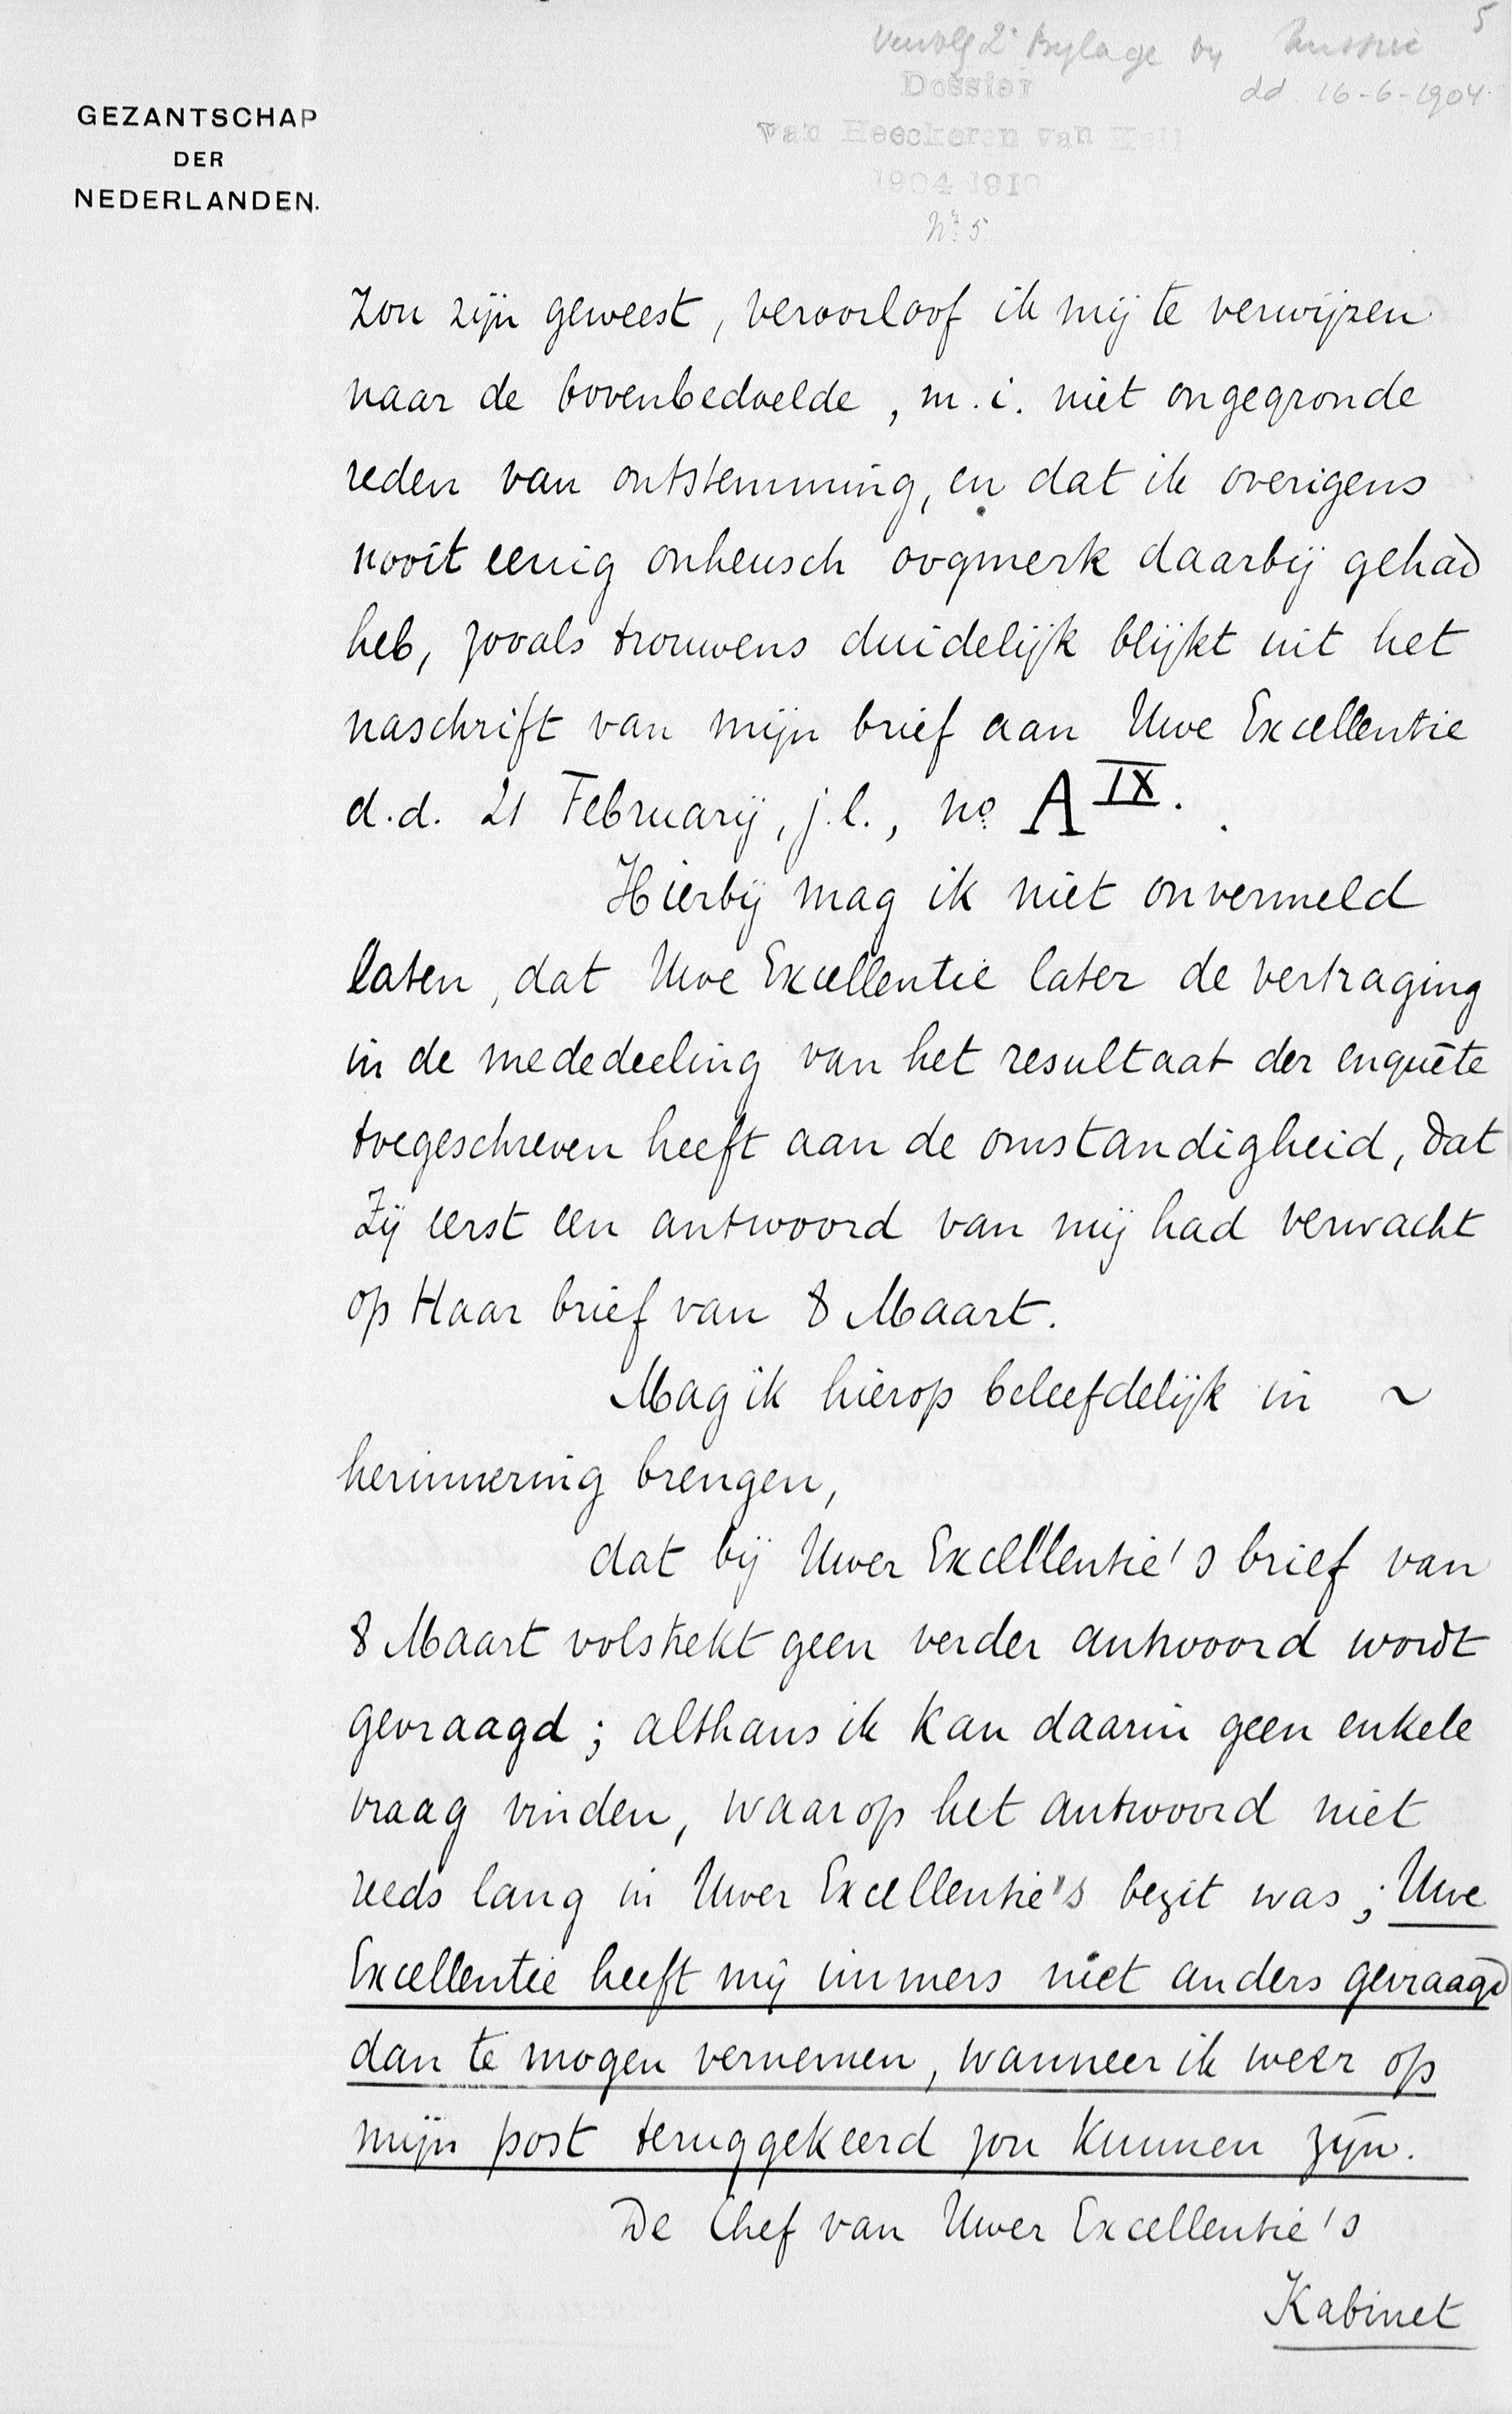 5
Vervolg 2e Bylage by Missive
dd. 16-6-1904.
Dossier
van Heeckeren van Kell
1904 1910
No. 5
GEZANTSCHAP
DER
NEDERLANDEN.
zou zijn geweest, veroorloof ik mij te verwijzen
naar de bovenbedoelde, m.i. niet ongegronde
reden van ontstemming, en dat ik overigens
nooit eenig onheusch oogmerk daarbij gehad
heb, zooals trouwens duidelijk blijkt uit het
naschrift van mijn brief aan Uwe Excellentie
d.d. 21 Februarij, j.l., no A IX.
Hierbij mag ik niet onvermeld
laten, dat Uwe Excellentie later de vertraging
in de mededeeling van het resultaat der enquête
toegeschreven heeft aan de omstandigheid, dat
Zij eerst een antwoord van mij had verwacht
op Haar brief van 8 Maart.
Mag ik hierop beleefdelijk in ~
herinnering brengen,
dat bij Uwer Excellentie's brief van
8 Maart volstrekt geen verder antwoord wordt
gevraagd; althans ik kan daarin geen enkele
vraag vinden, waarop het antwoord niet
reeds lang in Uwer Excellentie's bezit was; Uwe
Excellentie heeft mij immers niet anders gevraagd
dan te mogen vernemen, wanneer ik weer op
mijn post teruggekeerd zou kunnen zijn.
De Chef van Uwer Excellentie's
Kabinet